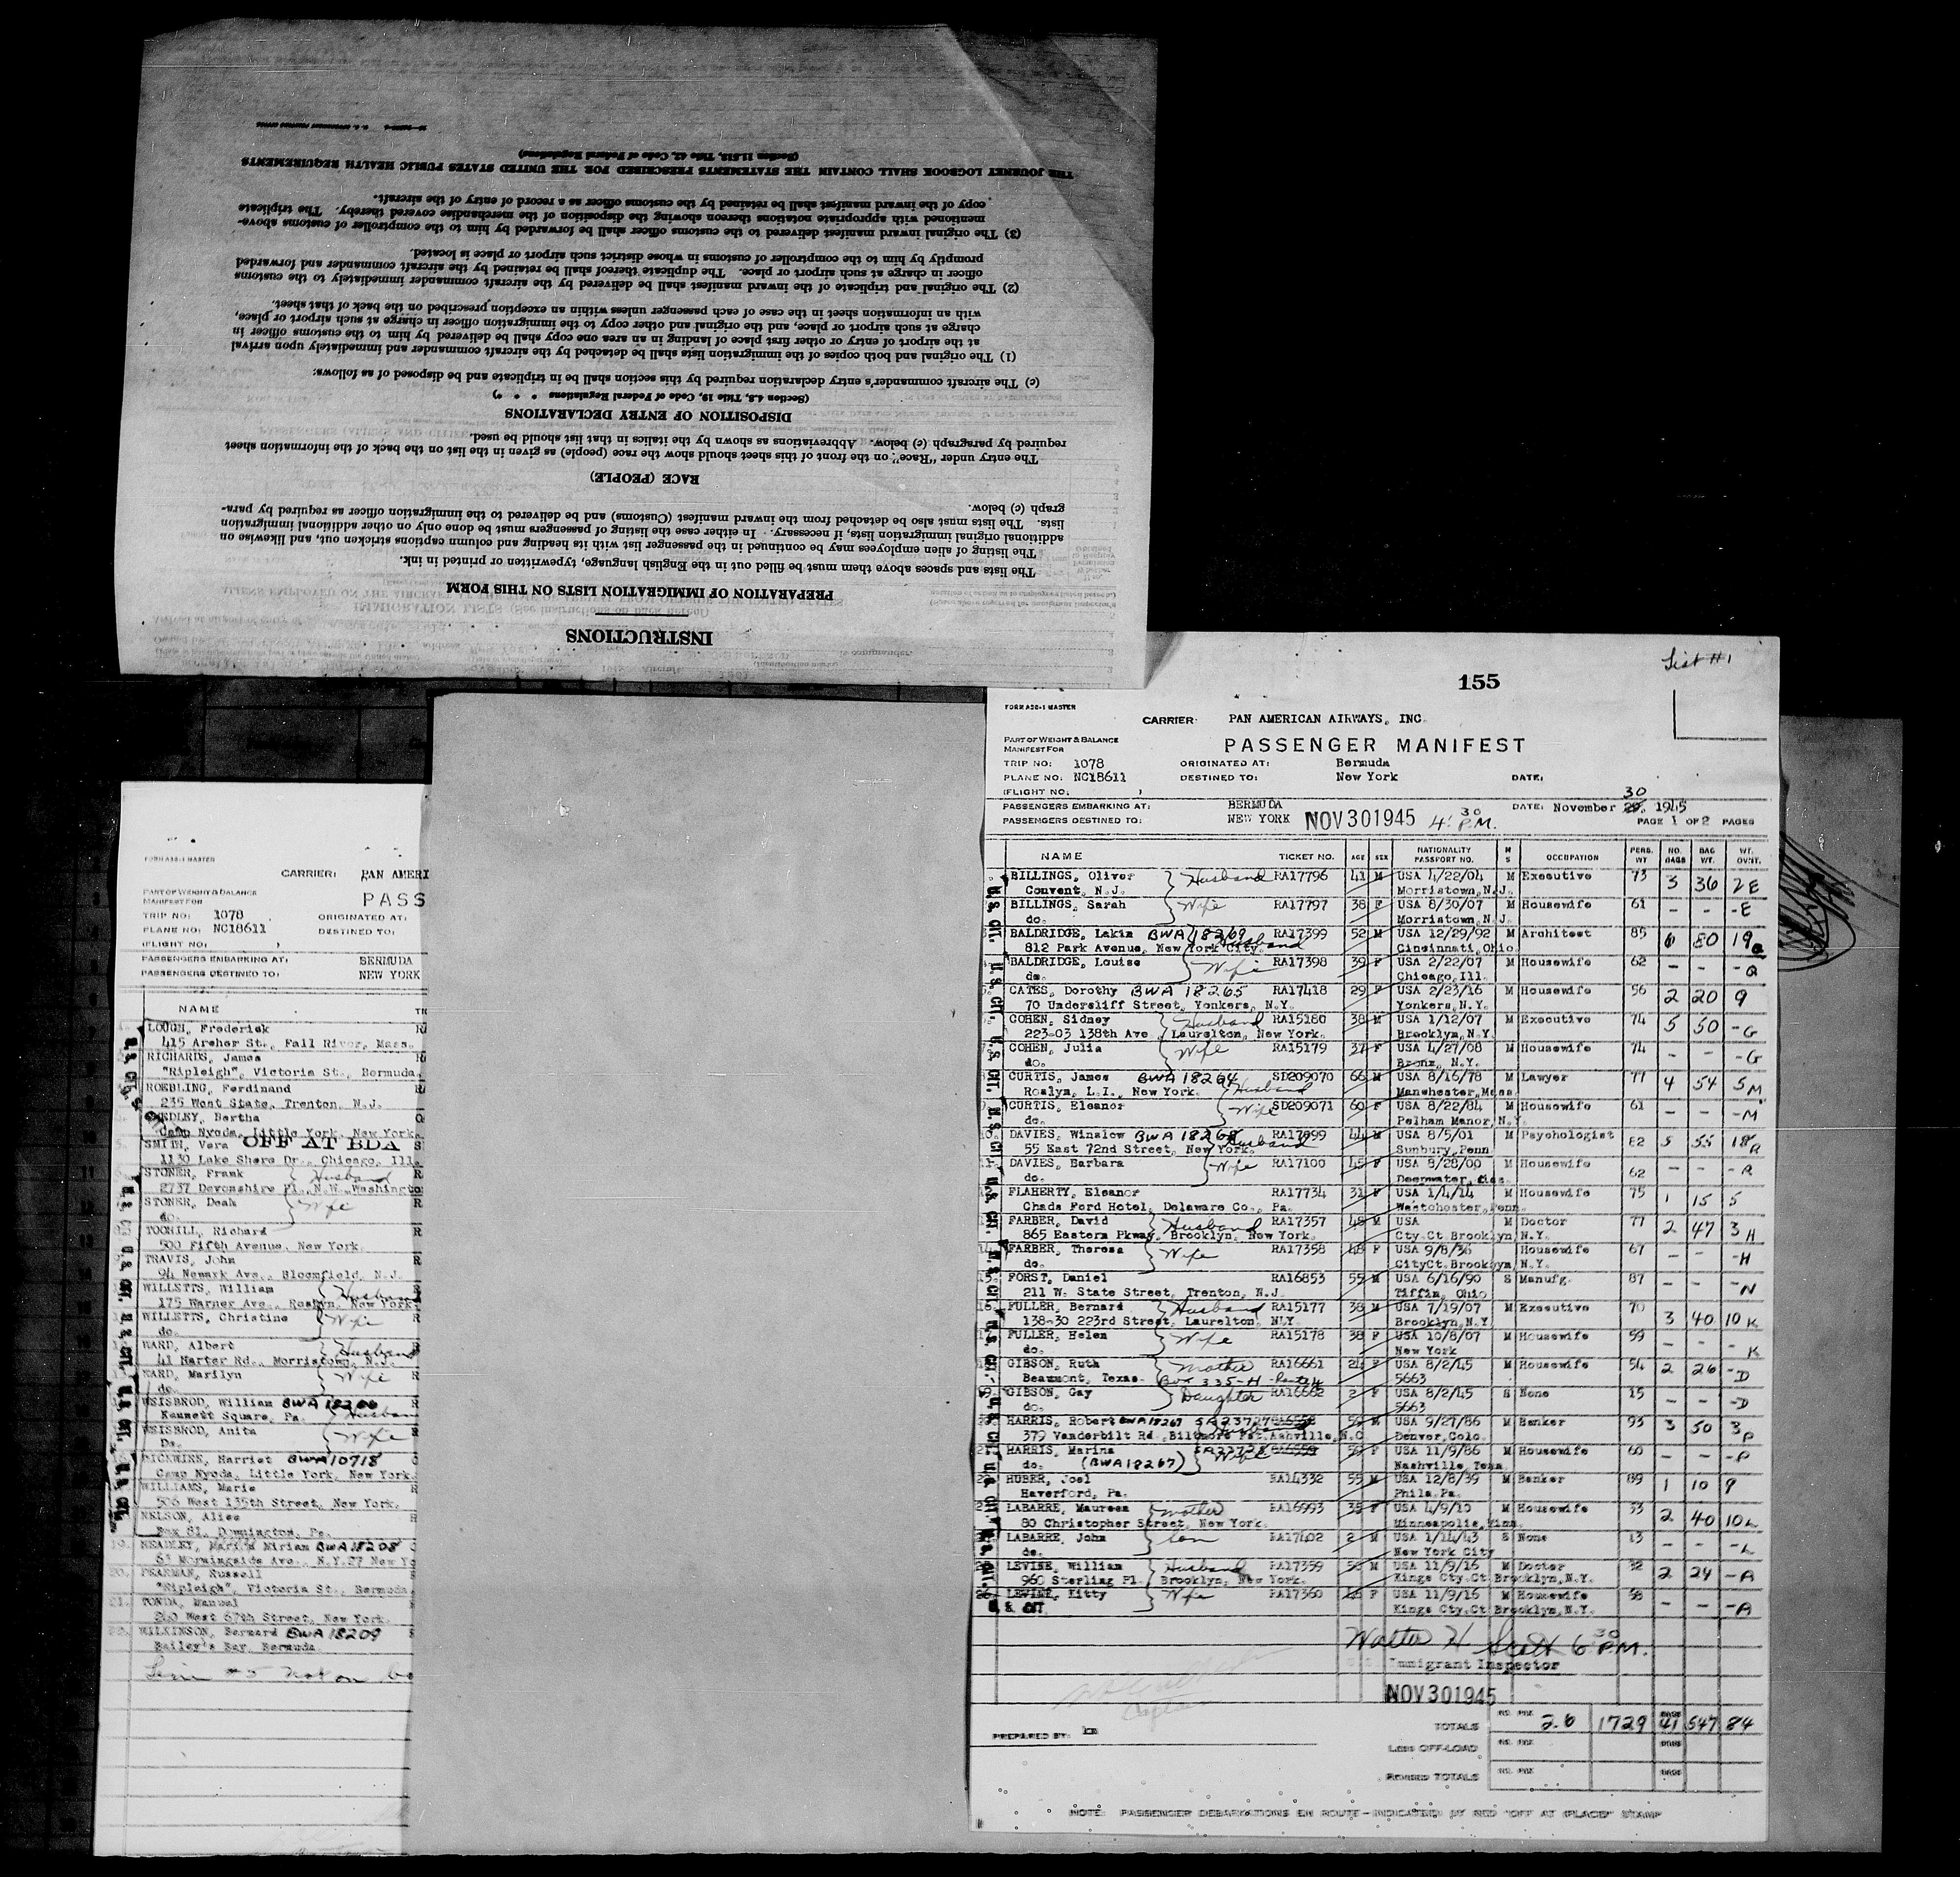 INSTRUCTIONS
PREPARATION OF IMMIGRATION LISTS ON THIS FORM
The lists and spaces above them must be filled out in the English language, typewritten or printed in ink.
The listing of alien employees may be continued in the passenger list with its heading and column captions stricken out, and likewise on
additional original immigration lists, if necessary. In either case the listing of passengers must be done only on other additional immigration
lists. The lists must also be detached from the inward manifest (Customs) and be delivered to the immigration officer as required by para-
graph (c) below.
RACE (PEOPLE)
The entry under "Race" on the front of this sheet should show the race (people) as given in the list on the back of the information sheet
required by paragraph (c) below. Abbreviations as shown by the italics in that list should be used.
DISPOSITION OF ENTRY DECLARATIONS
(Section 4.8, Title 19, Code of Federal Regulations * * *)
(c) The aircraft commander's entry declaration required by this section shall be in triplicate and be disposed of as follows:
(1) The original and both copies of the immigration lists shall be detached by the aircraft commander and immediately upon arrival
at the airport of entry or other first place of landing in an area one copy shall be delivered by him to the customs officer in
charge at such airport or place, and the original and other copy to the immigration officer in charge at such airport or place,
with an information sheet in the case of each passenger unless within an exception prescribed on the back of that sheet.
(2) The original and triplicate of the inward manifest shall be delivered by the aircraft commander immediately to the customs
officer in charge at such airport or place. The duplicate thereof shall be retained by the aircraft commander and forwarded
promptly by him to the comptroller of customs in whose district such airport or place is located.
(3) The original inward manifest delivered to the customs officer shall be forwarded by him to the comptroller of customs above-
mentioned with appropriate notations thereon showing the disposition of the merchandise covered thereby. The triplicate
copy of the inward manifest shall be retained by the customs officer as a record of entry of the aircraft.
THE JOURNEY LOGBOOK SHALL CONTAIN THE STATEMENTS PRESCRIBED FOR THE UNITED STATES PUBLIC HEALTH REQUIREMENTS
(Section 11.513, Title 42, Code of Federal Regulations)
FORM ASG-1 MASTER
CARRIER: PAN AMERI
PART OF WEIGHT & BALANCE
MANIFEST FOR
PASS
TRIP NO: 1078 ORIGINATED AT:
PLANE NO: NC18611 DESTINED TO:
(FLIGHT NO: )
PASSENGERS EMBARKING AT: BERMUDA
PASSENGERS DESTINED TO: NEW YORK
NAME
LOUGH, Frederick
415 Archer St., Fall River, Mass.
RICHARDS, James
"Ripleigh", Victoria St., Bermuda.
ROEBLING, Ferdinand
235 West State, Trenton, N.J.
Bertha
Camp Nyoda, Little York, New York.
SMITH, Vera OFF AT BDA
1130 Lake Shore Dr., Chicago, Ill.
STONER, Frank Husband
2737 Devonshire Pl., N.W. Washingto
STONER, Deah Wife
do.
TOOHILL, Richard
500 Fifth Avenue, New York.
TRAVIS, John
94 Newark Ave., Bloomfield, N.J.
WILLETTS, William Husban
175 Warner Ave., Roslyn, New York.
WILLETTS, Christine Wife
do.
WARD, Albert Husband
41 Harter Rd., Morristown, N.J.
WARD, Marilyn Wife
do.
WEISBROD, William BWA 18266
Kennett Square, Pa. Husban
WEISBROD, Anita Wife
Do.
Harriet BWA 10718
Camp Nyoda, Little York, New York.
WILLIAMS, Marie
506 West 135th Street, New York.
NELSON, Alice
Box 81, Pa.
Miriam BWA 18208
63 Morningside Ave., N.Y.27 New Yo
20. PEARMAN, Russell
"Ripleigh", Victoria St., Bermuda.
21. TONDA, Manuel
240 West 67th Street, New York.
22. WILKINSON, Bernard BWA 18209
Bailey's Bay, Bermuda.
Line #5 not on bo
List #1
155
FORM ASG-1 MASTER
CARRIER: PAN AMERICAN AIRWAYS, INC.
PART OF WEIGHT & BALANCE
MANIFEST FOR
PASSENGER MANIFEST
TRIP NO: 1078 ORIGINATED AT: Bermuda
PLANE NO: NC18611 DESTINED TO: New York DATE:
(FLIGHT NO: )
30
PASSENGERS EMBARKING AT: BERMUDA DATE: November 29, 1945
PASSENGERS DESTINED TO: NEW YORK NOV 30 1945 4:30 P.M. PAGE 1 OF 2 PAGES
NAME TICKET NO. AGE SEX NATIONALITY PASSPORT NO. M S OCCUPATION PERS. WT NO. BAGS BAG WT. WT. OVNT.
BILLINGS, Oliver Husband RA17796 41 M USA 4/22/04 M Executive 73 3 36 2E
Convent, N.J. Morristown, N.J.
BILLINGS, Sarah Wife RA17797 38 F USA 8/30/07 M Housewife 61 - - -E
do. Morristown, N.J.
BALDRIDGE, Lakin BWA 18269 RA17399 52 M USA 12/29/92 M Architect 85 6 80 19Q
812 Park Avenue, New York City. Husband Cincinnati, Ohio.
BALDRIDGE, Louise Wife RA17398 39 F USA 2/22/07 M Housewife 62 - - -Q
do. Chicago, Ill.
CATES, Dorothy BWA 18265 RA17418 29 F USA 2/23/16 M Housewife 56 2 20 9
70 Undercliff Street, Yonkers, N.Y. Yonkers, N.Y.
COHEN, Sidney Husband RA15180 38 M USA 1/12/07 M Executive 74 5 50 -G
223-03 138th Ave., Laurelton, New York. Brooklyn, N.Y.
COHEN, Julia Wife RA15179 37 F USA 4/27/08 M Housewife 74 - - -G
do. Bronx, N.Y.
CURTIS, James BWA 18264 SD209070 66 M USA 8/16/78 M Lawyer 77 4 54 5M
Roslyn, L.I., New York. Husband Manchester, Mass.
CURTIS, Eleanor Wife SD209071 60 F USA 8/22/84 M Housewife 61 - - -M
do. Pelham Manor, N.Y.
10. DAVIES, Winslow BWA 18268 RA17099 44 M USA 8/5/01 M Psychologist 82 5 55 18R
55 East 72nd Street, New York. Husband Sunbury, Penn
DAVIES, Barbara Wife RA17100 45 F USA 8/28/00 M Housewife 62 - - -R
do. Deepwater,
FLAHERTY, Eleanor RA17734 31 F USA 1/4/14 M Housewife 75 1 15 5
Chads Ford Hotel, Delaware Co., Pa. Westchester, Penn.
FARBER, David Husband RA17357 48 M USA M Doctor 77 2 47 3H
865 Eastern Pkway, Brooklyn, New York. Cty.Ct Brooklyn, N.Y.
FARBER, Theresa Wife RA17358 48 F USA 9/8/36 Housewife 67 - - -H
do. CityCt. Brooklyn, N.Y.
15. FORST, Daniel RA16853 55 M USA 6/16/90 S Manufg. 87 - - -N
211 W. State Street, Trenton, N.J. Tiffin, Ohio
16. FULLER, Bernard Husband RA15177 38 M USA 7/19/07 M Executive 70 3 40 10K
138-30 223rd Street, Laurelton, NLY. Brooklyn, N.Y.
FULLER, Helen Wife RA15178 38 F USA 10/8/07 M Housewife 59 - - -K
do. New York
GIBSON, Ruth Mother RA16661 24 F USA 8/2/45 M Housewife 54 2 26 -D
Beaumont, Texas. Box 335-H 5663
GIBSON, Gay Daughter RA16662 2 F USA 8/2/45 S None 15 - - -D
do. 5663
HARRIS, Robert BWA 18267 SA23727 59 M USA 9/27/86 M Banker 93 3 50 3P
379 Vanderbilt Rd., Biltmore Fst. Ashville, N.C. Denver, Colo.
HARRIS, Marina SA23728 Wife 59 F USA 11/9/86 M Housewife 60 - - -P
do. (BWA 18267) Nashville, Tenn.
HUBER, Joel RA14332 55 M USA 12/8/39 M Banker 89 1 10 9
Haverford, Pa. Phila. Pa.
LABARRE, Maureen Mother RA16993 35 F USA 4/9/10 M Housewife 53 2 40 10L
80 Christopher Street, New York. Minneapolis, Minn.
LABARRE, John Son RA17402 2 M USA 1/14/43 S None 13 - - -L
do. New York City
LEVINE, William Husband RA17359 M USA 11/9/16 M Doctor 2 24 -A
960 Sterling Pl., Brooklyn, New York. Kings Cty.Ct Brooklyn, N.Y.
26. LEVINE, Kitty Wife RA17360 F USA 11/9/16 M Housewife 58 - - -A
do. Kings Cty.Ct Brooklyn, N.Y.
Walter H Scott 6:30 P.M.
Immigrant Inspector
NOV 30 1945
Captain
TOTALS 26 1729 41 547 84
PREPARED BY:
Less OFF-LOAD
Revised TOTALS
NOTE: PASSENGER DEBARKATIONS EN ROUTE - INDICATED BY RED "OFF AT (PLACE)" STAMP